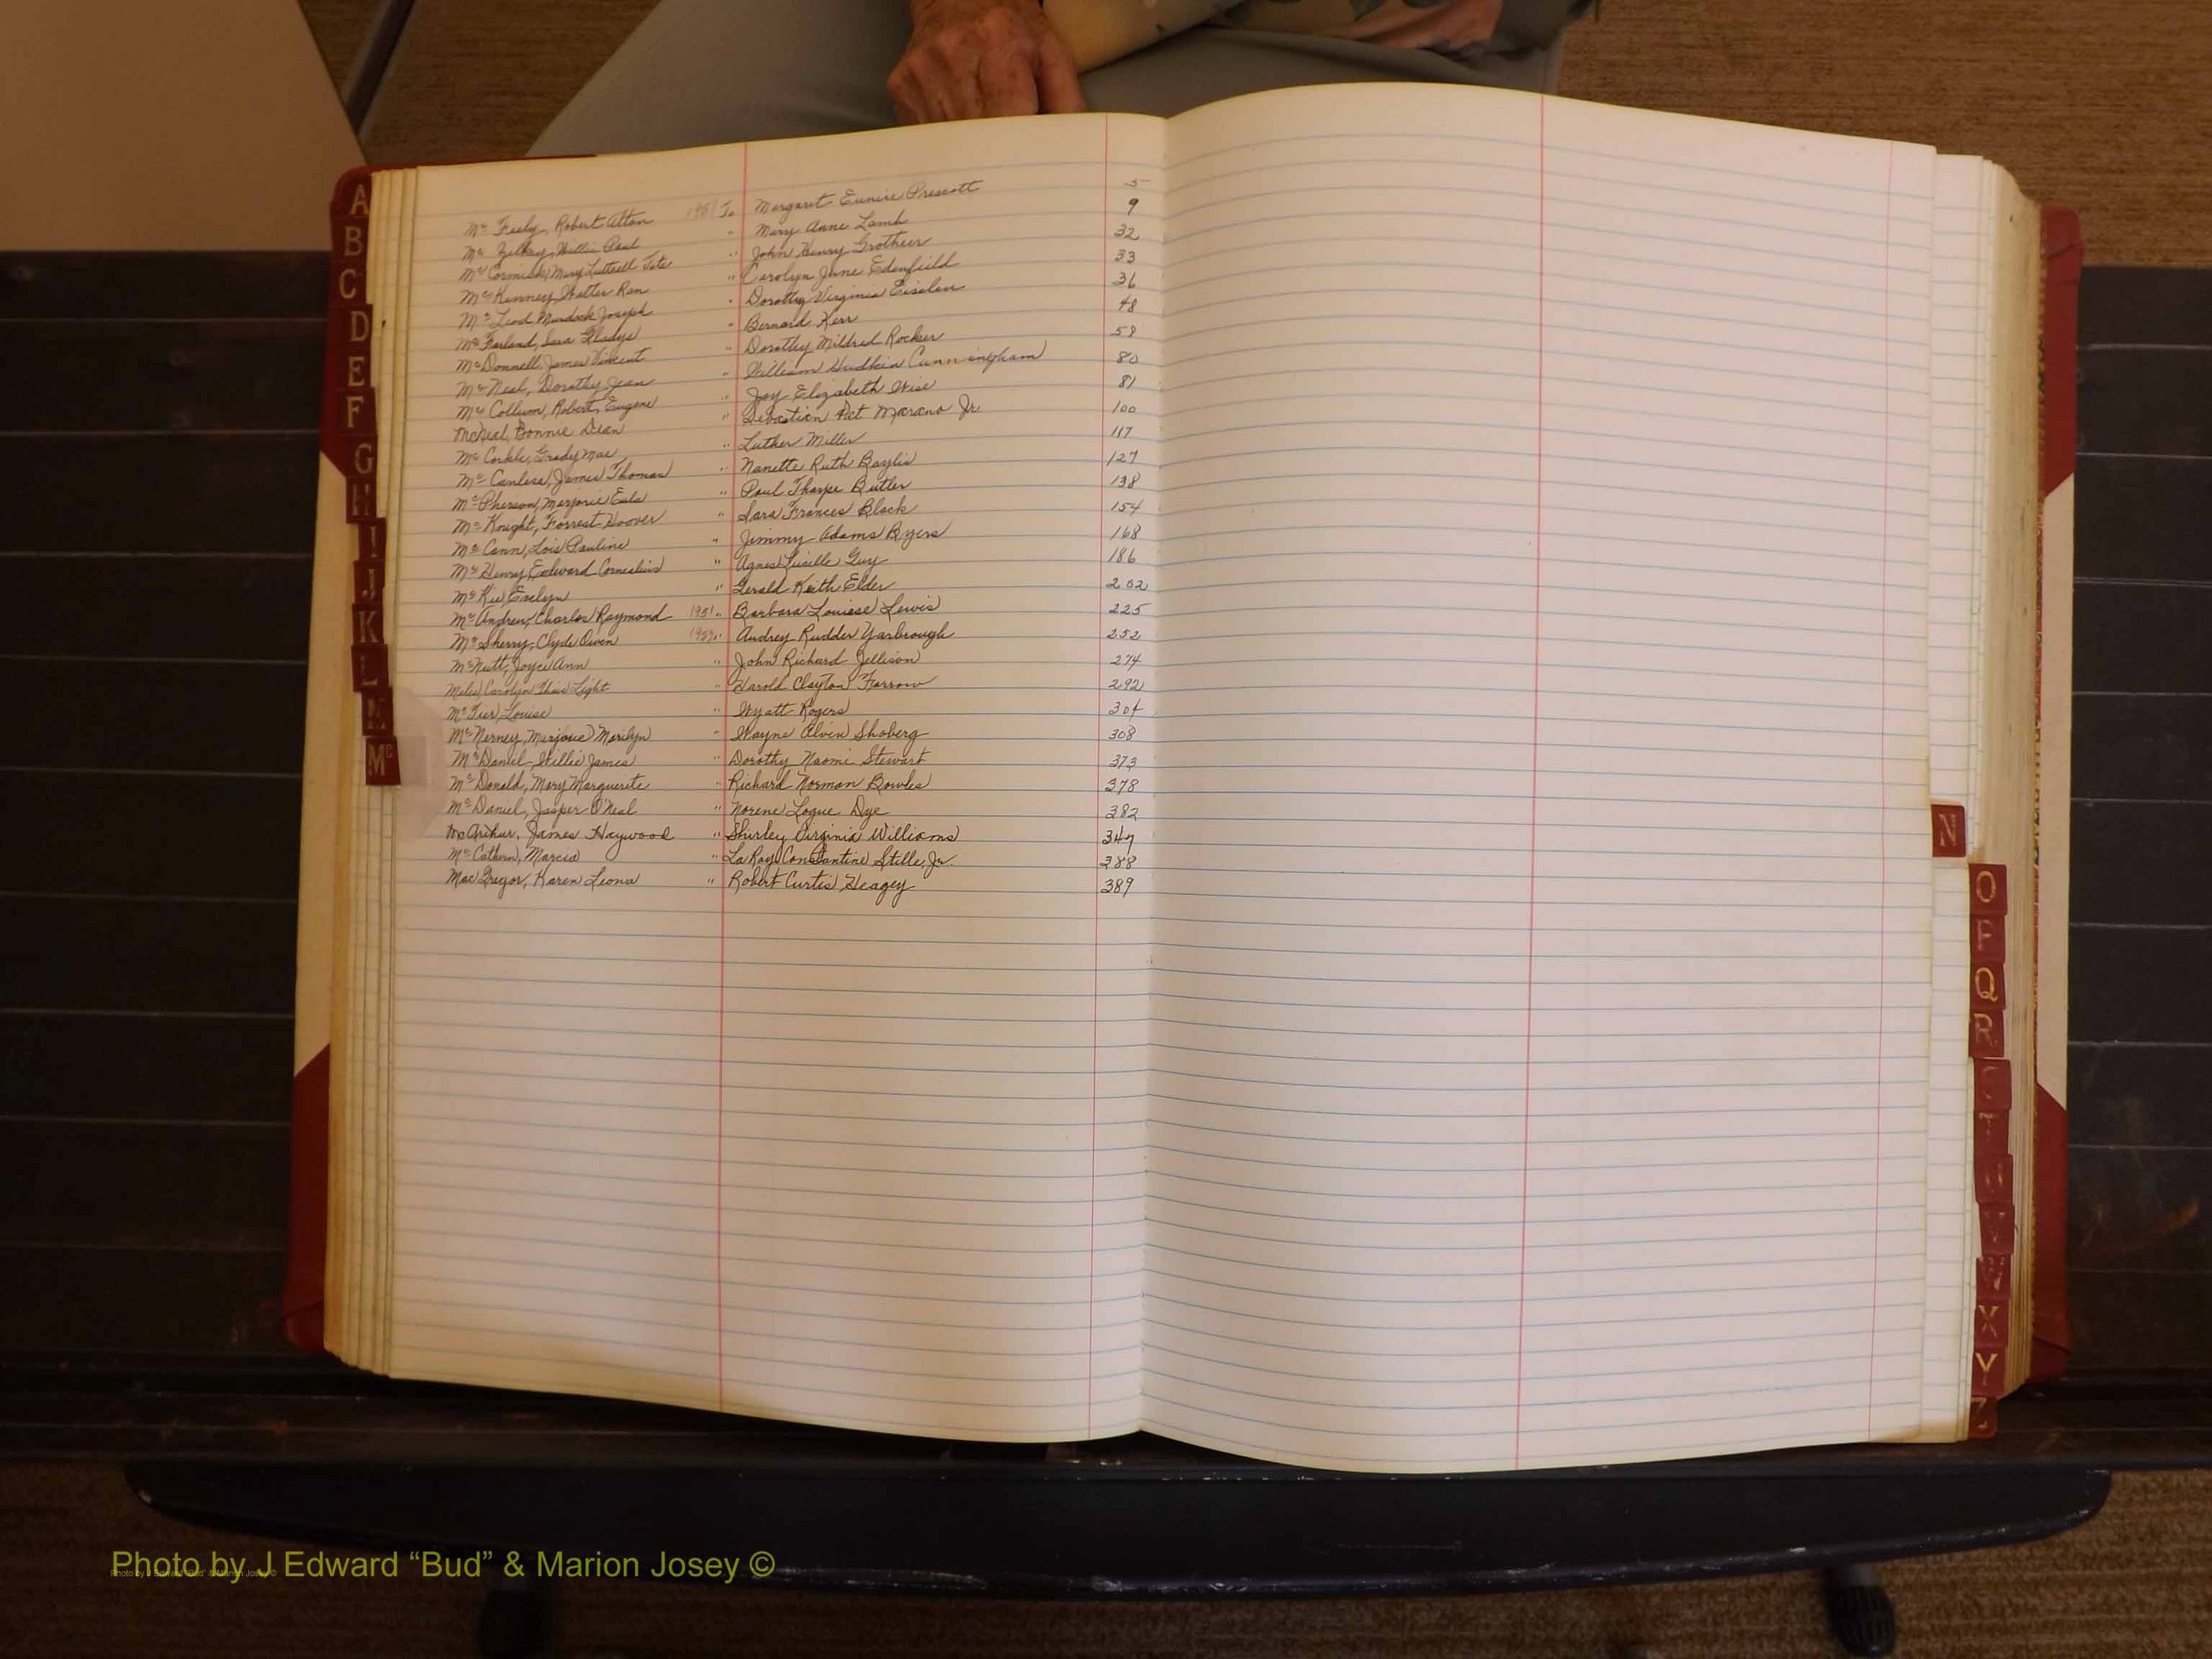 A
B
C
D
E
F
G
H
I
J
K
L
M
Mc
Mc Feely, Robert Alton 1951 To Margaret Eunice Prescott 5
Mc Willie Paul " Mary Anne Lamb 9
Mc Cormick, Mary Luttrell Tate " John Henry Grotheer 32
Mc Kinney, Walter Ran " Carolyn June Edenfield 33
Mc Leod, Murdock Joseph " Dorothy Virginia Eiselen 36
Mc Farland, Sara Gladys " Bernard Kerr 48
Mc Donnell, James Vincent " Dorothy Mildred Rocker 59
Mc Neal, Dorothy Jean " William Hudkin Cunningham 80
Mc Collum, Robert Eugene " Joy Elizabeth Wise 81
McNeal, Bonnie Dean " Sebastian Pat Marano Jr. 100
Mc Corkle, Grady Mae " Luther Miller 117
Mc Canless, James Thomas " Nanette Ruth Baylis 127
Mc Pherson, Marjorie Eula " Paul Tharpe Butler 138
Mc Knight, Forrest Hoover " Sara Frances Black 154
Mc Cann, Lois Pauline " Jimmy Adams Byers 168
Mc Henry, Edward Cornelius " Agnes Lucille Guy 186
Mc Kee, Evelyn " Gerald Keith Elder 202
Mc Andrew, Charles Raymond 1951 " Barbara Louise Lewis 225
Mc Sherry, Clyde Owen 1952 " Audrey Rudder Yarbrough 252
McNutt, Joyce Ann " John Richard Jellison 274
Carolyn Light " Harold Clayton Farrow 292
Mc Louise " Wyatt Rogers 304
Mc Nerney, Marjorie Marilyn " Wayne Alvin Shoberg 308
Mc Daniel, Willie James " Dorothy Naomi Stewart 373
Mc Donald, Mary Marguerite " Richard Norman Bowles 378
Mc Daniel, Jasper O'Neal " Norene Logue Dye 382
McArthur, James Haywood " Shirley Virginia Williams 347
Mc Cathern, Marcia " LaRoy Constantine Stille, Jr. 388
MacGregor, Karen Leona " Robert Curtis Heagey 389
N
O
P
Q
R
S
T
U
V
W
X
Y
Z
Photo by J Edward “Bud” & Marion Josey ©
Photo by J Edward "Bud" & Marion Josey ©